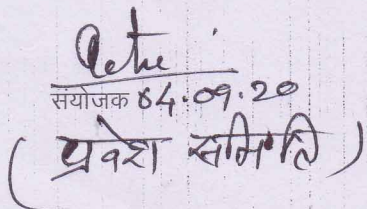 संयोजक 04.09.20
(प्रवेश समिति)